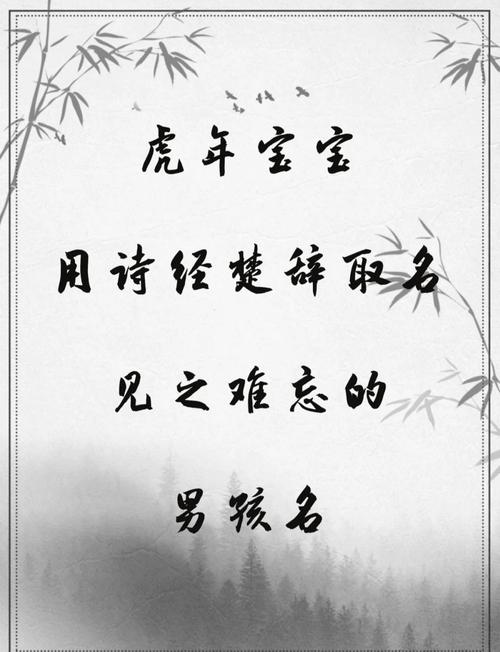 虎年宝宝
用诗经楚辞取名
见之难忘的
男孩名